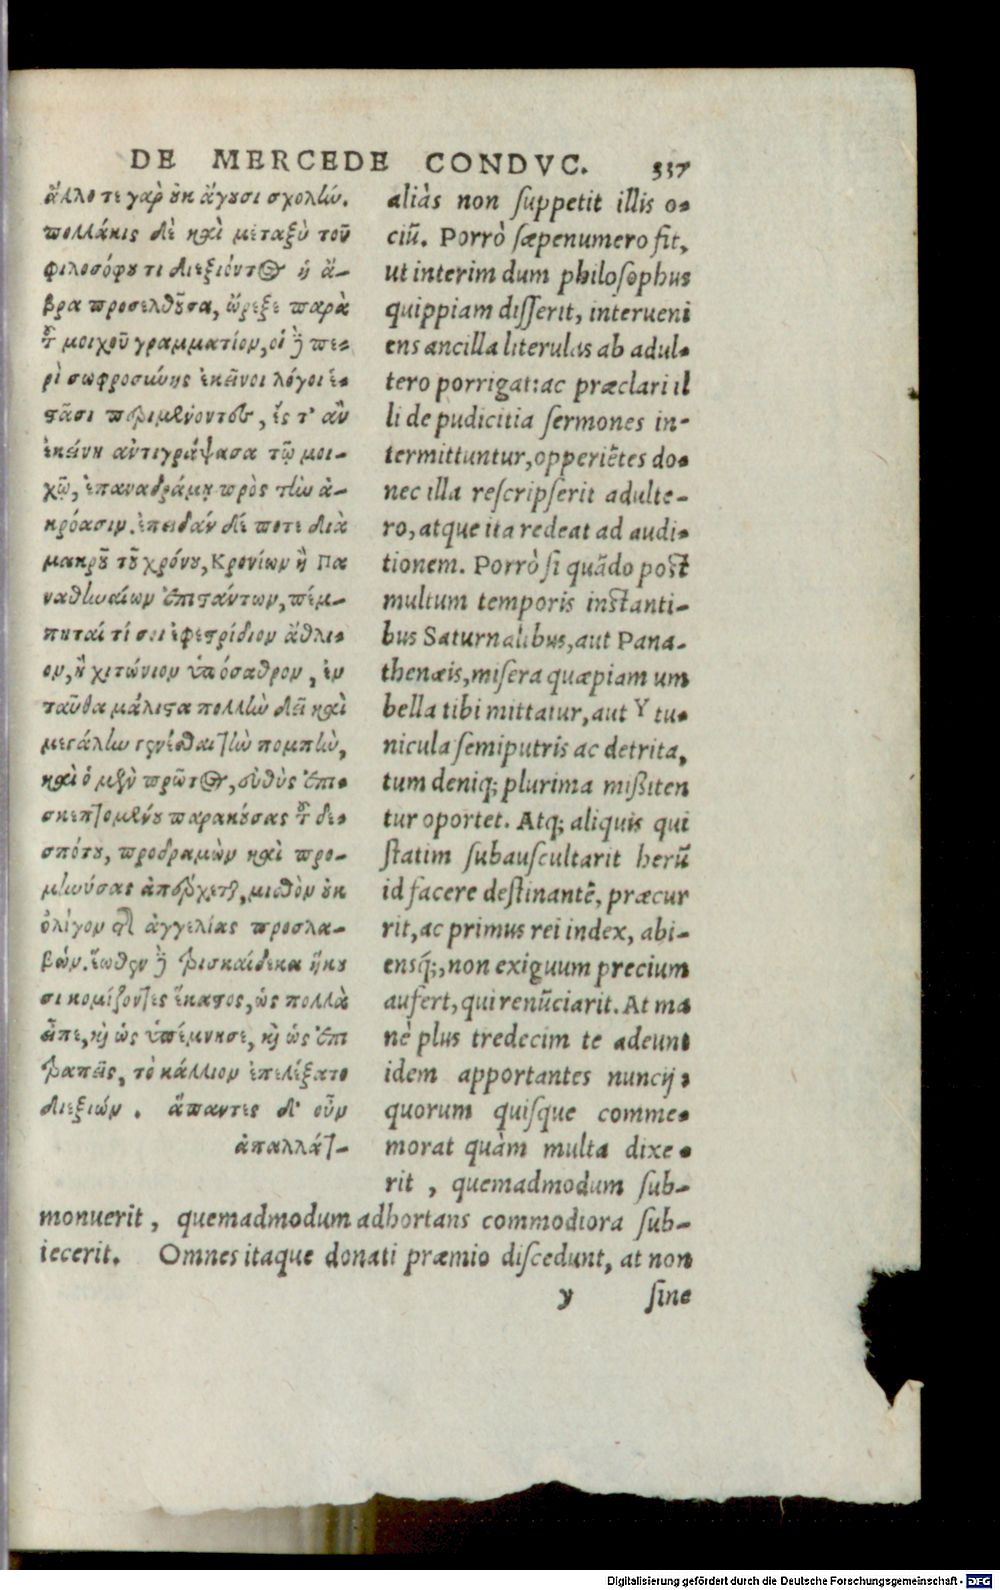 DE MERCEDE CONDVC. 337
ἄλλοτε γὰρ ȣ̓κ ἄγȣσι σχολίω.
πολλάκις δὲ καὶ μεταξὺ τοῦ
φιλοσόφȣ τι διεξιόντος ἡ ἅ-
βρα προσελθȣ̃σα, ὤρεξε παρὰ
τȣ̃ μοιχοῦ γραμμάτιον, οἱ δὲ πε-
ρὶ σωφροσύνης ἐκεῖνοι λόγοι ἑ-
στᾶσι περιμένοντες, ἔς τ' ἂν
ἐκείνη ἀντιγράψασα τῷ μοι-
χῷ, ἐπαναδράμῃ πρὸς τὴν ἀ-
κρόασιν. ἐπειδὰν δέ ποτε διὰ
μακρȣ̃ τȣ̃ χρόνȣ, Κρονίων ἢ Πα
ναθηναίων ἐπιστάντων, πέμ-
πηταί τί σοι ἐφεστρίδιον ἄθλι-
ον, ἢ χιτώνιον ὑπόσαθρον, ἐν
ταῦθα μάλιστα πολλὴν δεῖ καὶ
μεγάλην γενέσθαι τὴν πομπὴν,
καὶ ὁ μὲν πρῶτος, εὐθὺς ἐπι-
σκεπτομένȣ παρακȣ́σας τȣ̃ δε-
σπότȣ, προδραμὼν καὶ προ-
μηνύσας ἀπέρχεται, μισθὸν ȣ̓κ
ὀλίγον τῆς ἀγγελίας προσλα-
βών. ἕωθεν δὲ τρισκαίδεκα ἥκȣ
σι κομίζοντες ἕκαστος, ὡς πολλὰ
εἶπε, καὶ ὡς ὑπέμνησε, καὶ ὡς ἐπι
τραπεὶς, τὸ κάλλιον ἐπελέξατο
διεξιών. ἅπαντες δ' οὖν
ἀπαλλάτ-
aliàs non suppetit illis o-
ciũ. Porrò sæpenumero fit,
ut interim dum philosophus
quippiam disserit, interueni
ens ancilla literulas ab adul-
tero porrigat: ac præclari il
li de pudicitia sermones in-
termittuntur, opperiẽtes do-
nec illa rescripserit adulte-
ro, atque ita redeat ad audi-
tionem. Porrò si quãdo post
multum temporis instanti-
bus Saturnalibus, aut Pana-
thenæis, misera quæpiam um
bella tibi mittatur, aut Y tu-
nicula semiputris ac detrita,
tum deniq; plurima mißiten
tur oportet. Atq; aliquis qui
statim subauscultarit herũ
id facere destinantẽ, præcur
rit, ac primus rei index, abi-
ensq́;, non exiguum precium
aufert, qui renũciarit. At ma
nè plus tredecim te adeunt
idem apportantes nuncij,
quorum quisque comme-
morat quàm multa dixe-
rit, quemadmodum sub-
monuerit, quemadmodum adhortans commodiora sub-
iecerit. Omnes itaque donati præmio discedunt, at non
y sine
Digitalisierung gefördert durch die Deutsche Forschungsgemeinschaft - DFG